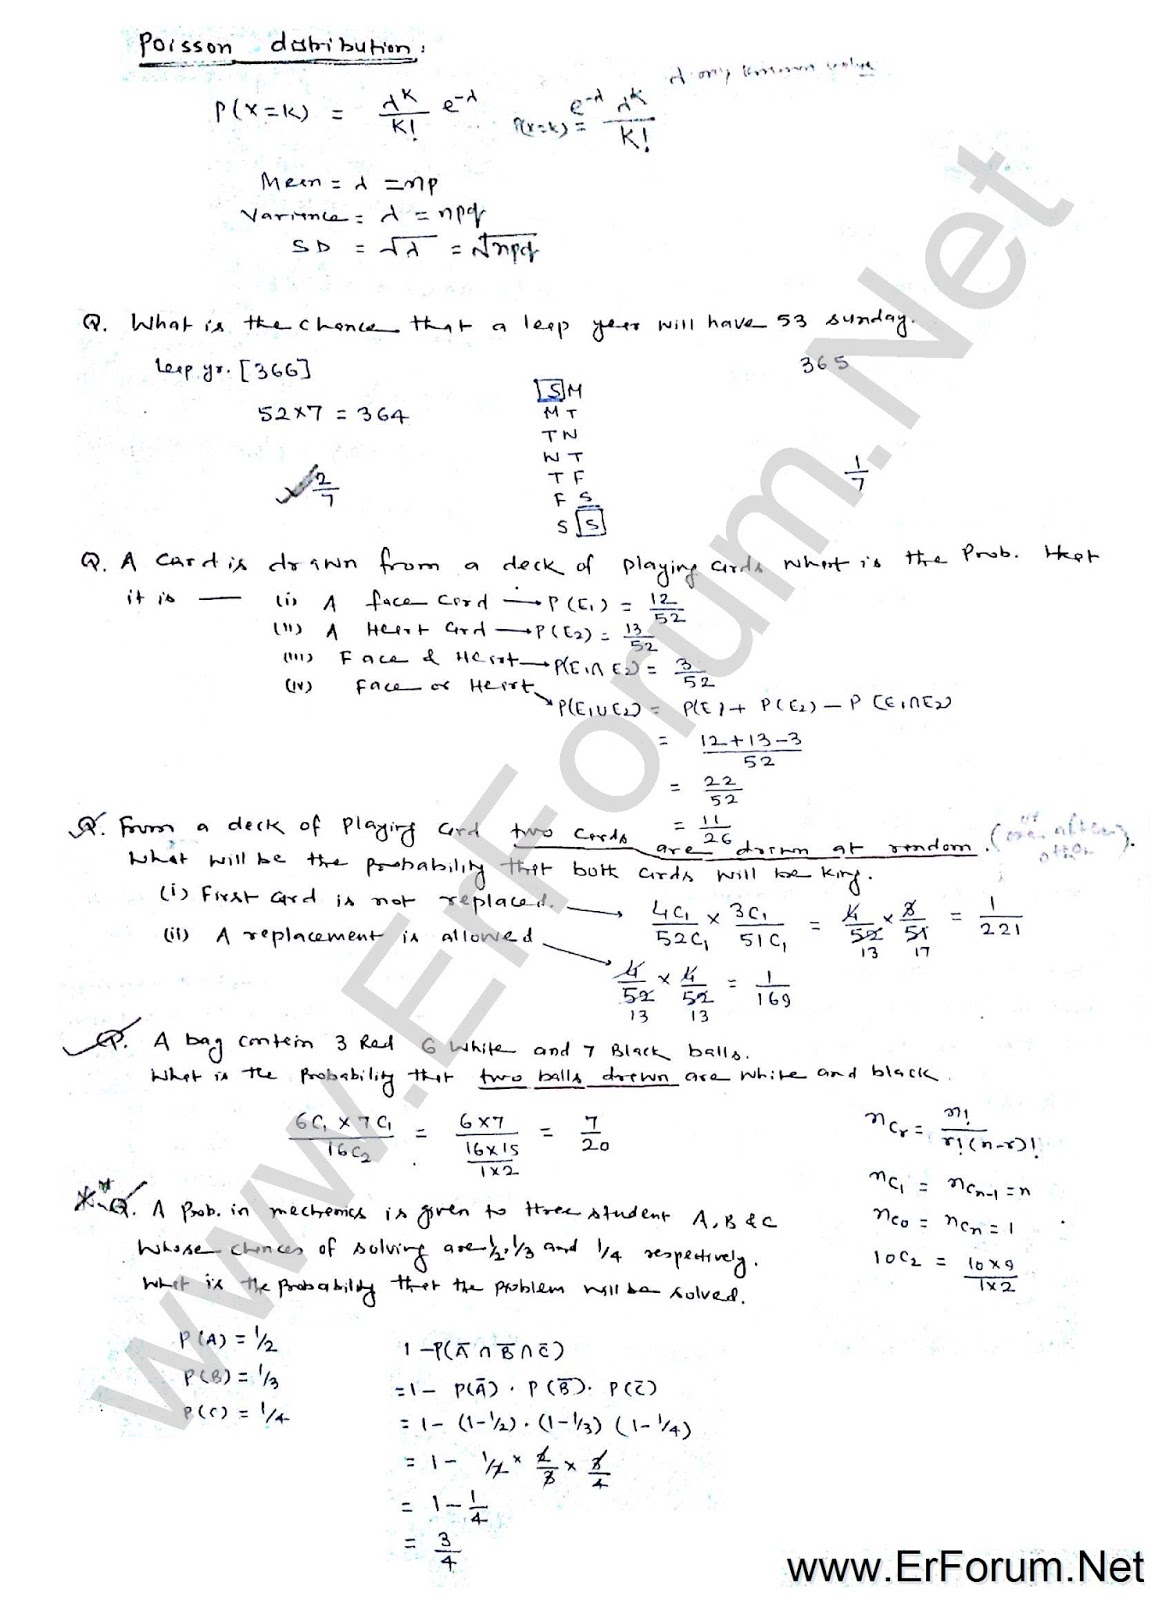 Poisson distribution:
λ only known value
P(X=K) = λ^K/K! e^-λ P(X=K) = e^-λ λ^K/K!
Mean = λ = np
Variance = λ = npq
SD = √λ = √npq
Q. What is the chance that a leap year will have 53 sunday.
leap yr. [366] 365
52×7 = 364
S M
M T
T W
W T
T F
F S
S S
2/7 1/7
Q. A card is drawn from a deck of playing cards what is the Prob. that
it is — (i) A face card → P(E1) = 12/52
(ii) A Heart card → P(E2) = 13/52
(iii) Face & Heart → P(E1∩E2) = 3/52
(iv) Face or Heart → P(E1∪E2) = P(E) + P(E2) − P(E1∩E2)
= 12+13−3/52
= 22/52
= 11/26
Q. From a deck of playing card two cards are drawn at random. (or one after other).
What will be the probability that both cards will be king.
(i) First card is not replaced. → 4C1/52C1 × 3C1/51C1 = 4/52 × 3/51 = 1/221
13 17
(ii) A replacement is allowed → 4/52 × 4/52 = 1/169
13 13
Q. A bag contain 3 Red 6 White and 7 Black balls.
What is the Probability that two balls drawn are white and black.
6C1 × 7C1/16C2 = 6×7/(16×15/1×2) = 7/20
nCr = n!/r!(n-r)!
nC1 = nCn-1 = n
nC0 = nCn = 1
10C2 = 10×9/1×2
*Q. A Prob. in mechanics is given to three student A, B & C
whose chances of solving are 1/2, 1/3 and 1/4 respectively.
What is the Probability that the problem will be solved.
P(A) = 1/2
P(B) = 1/3
P(C) = 1/4
1 − P(A̅ ∩ B̅ ∩ C̅)
= 1 − P(A̅) · P(B̅) · P(C̅)
= 1 − (1−1/2) · (1−1/3) (1−1/4)
= 1 − 1/2 × 2/3 × 3/4
= 1 − 1/4
= 3/4
www.ErForum.Net
www.ErForum.Net